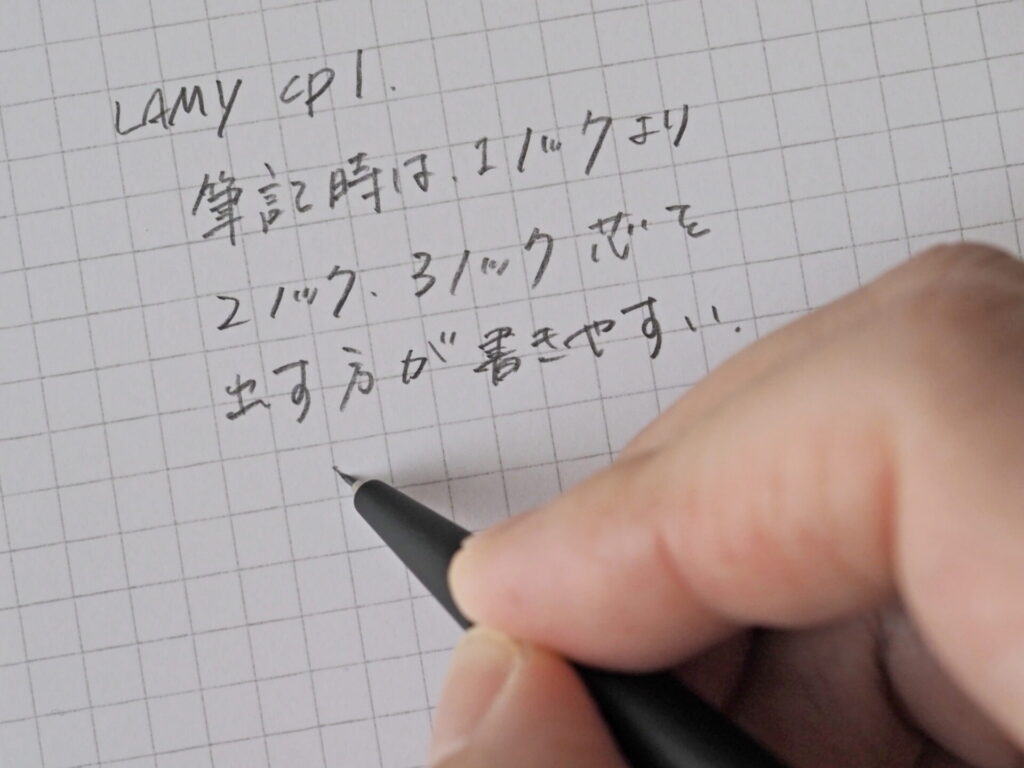 LAMY cp1.
筆記時は、1ノックより
2ノック、3ノック芯を
出す方が書きやすい.